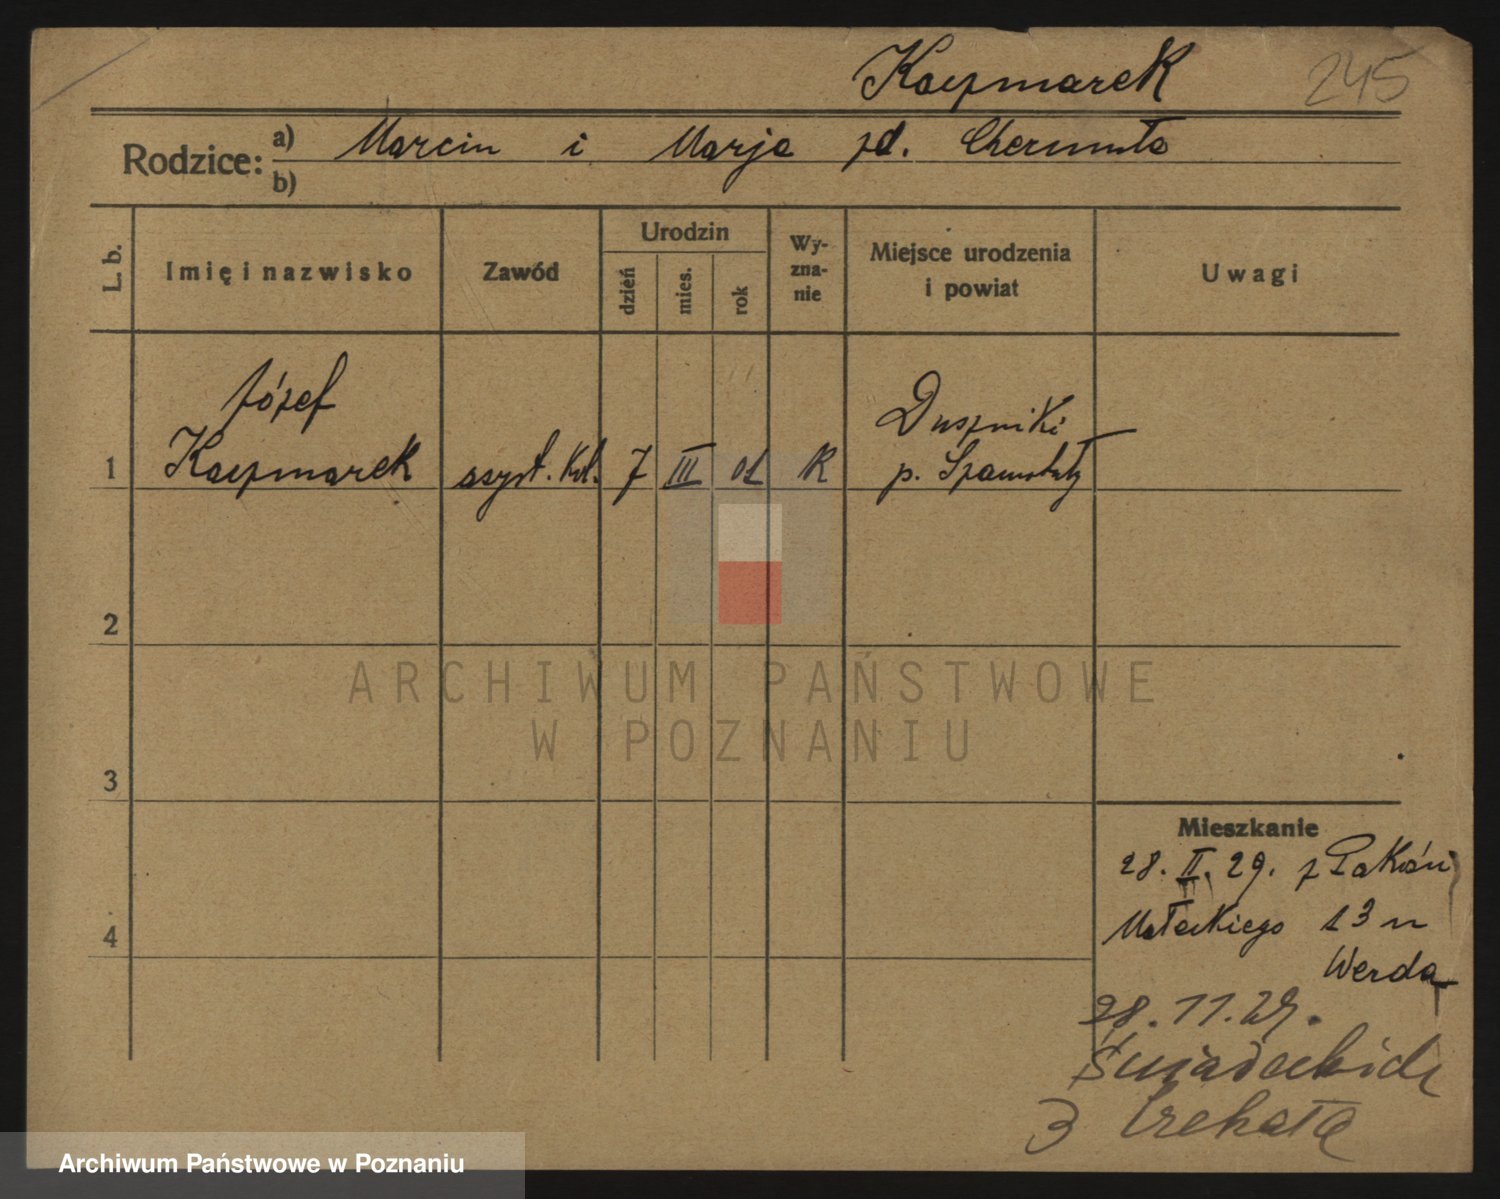 Kaczmarek 245
Rodzice: a) Marcin i Marja zd. Chermuła
b)
L. b. Imię i nazwisko Zawód Urodzin dzień mies. rok Wy-zna-nie Miejsce urodzenia i powiat Uwagi
Józef
Kaczmarek
1 asyst. Kol. 7 III 01 K
Duszniki
p. Szamotuły
2
3
4
Mieszkanie
28. II. 29. z Pakości
Małeckiego 13 u
Werda
28. 11. 29.
Śniadeckich
3
ARCHIWUM PAŃSTWOWE
W POZNANIU
Archiwum Państwowe w Poznaniu